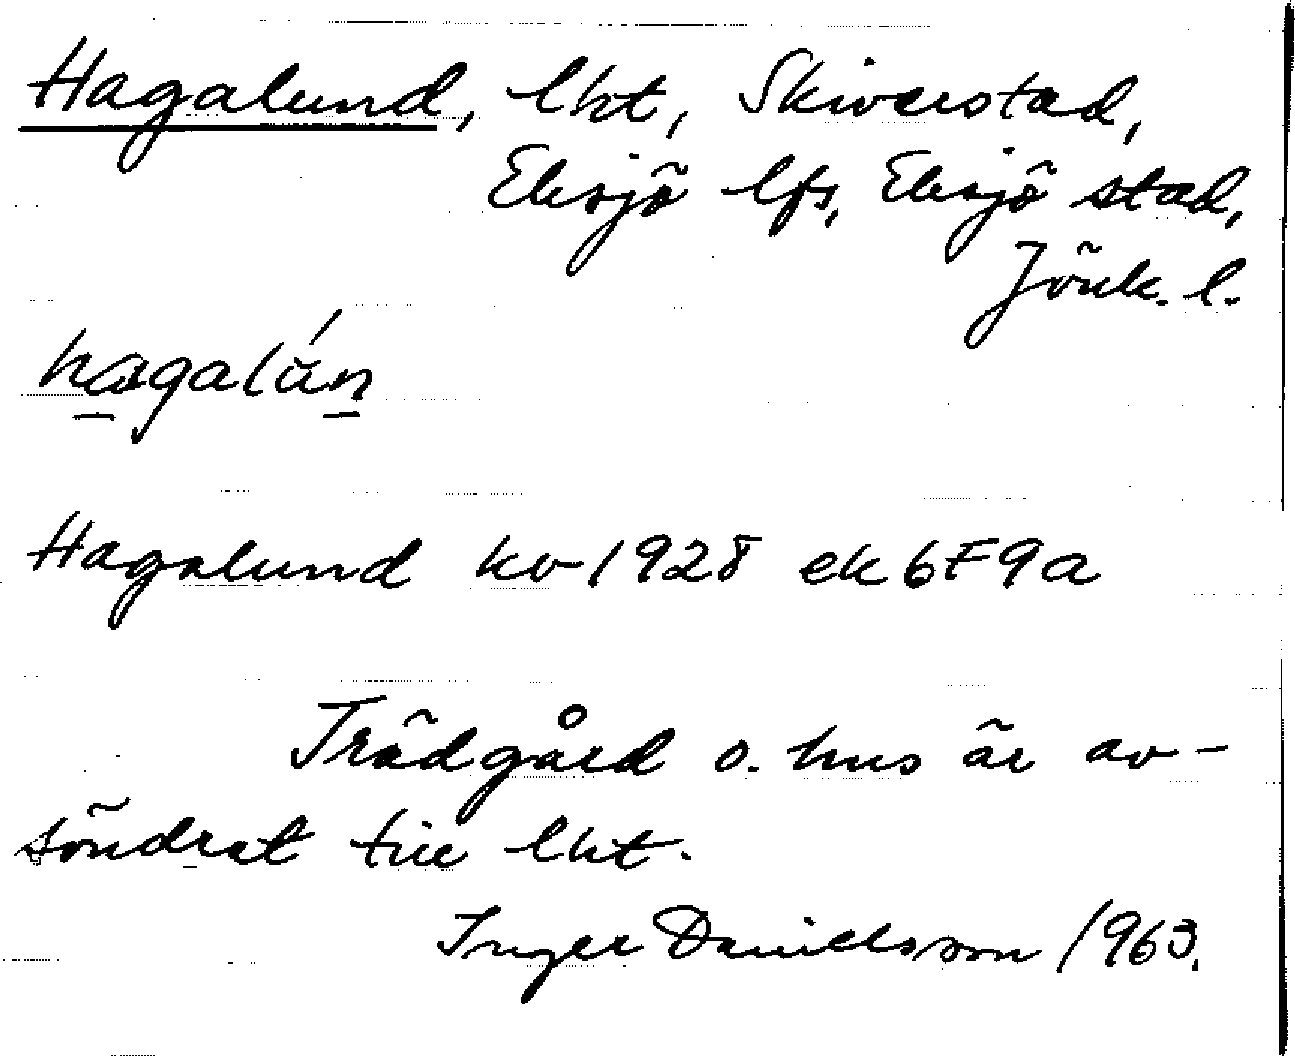 Hagalund, lht, Skiverstad,
Eksjö lfs, Eksjö stad,
Jönk. l.
hagalún
Hagalund kv 1928 ek 6F9a
Trädgård o. hus är av-
söndrat till lht.
Inger Danielsson 1963.